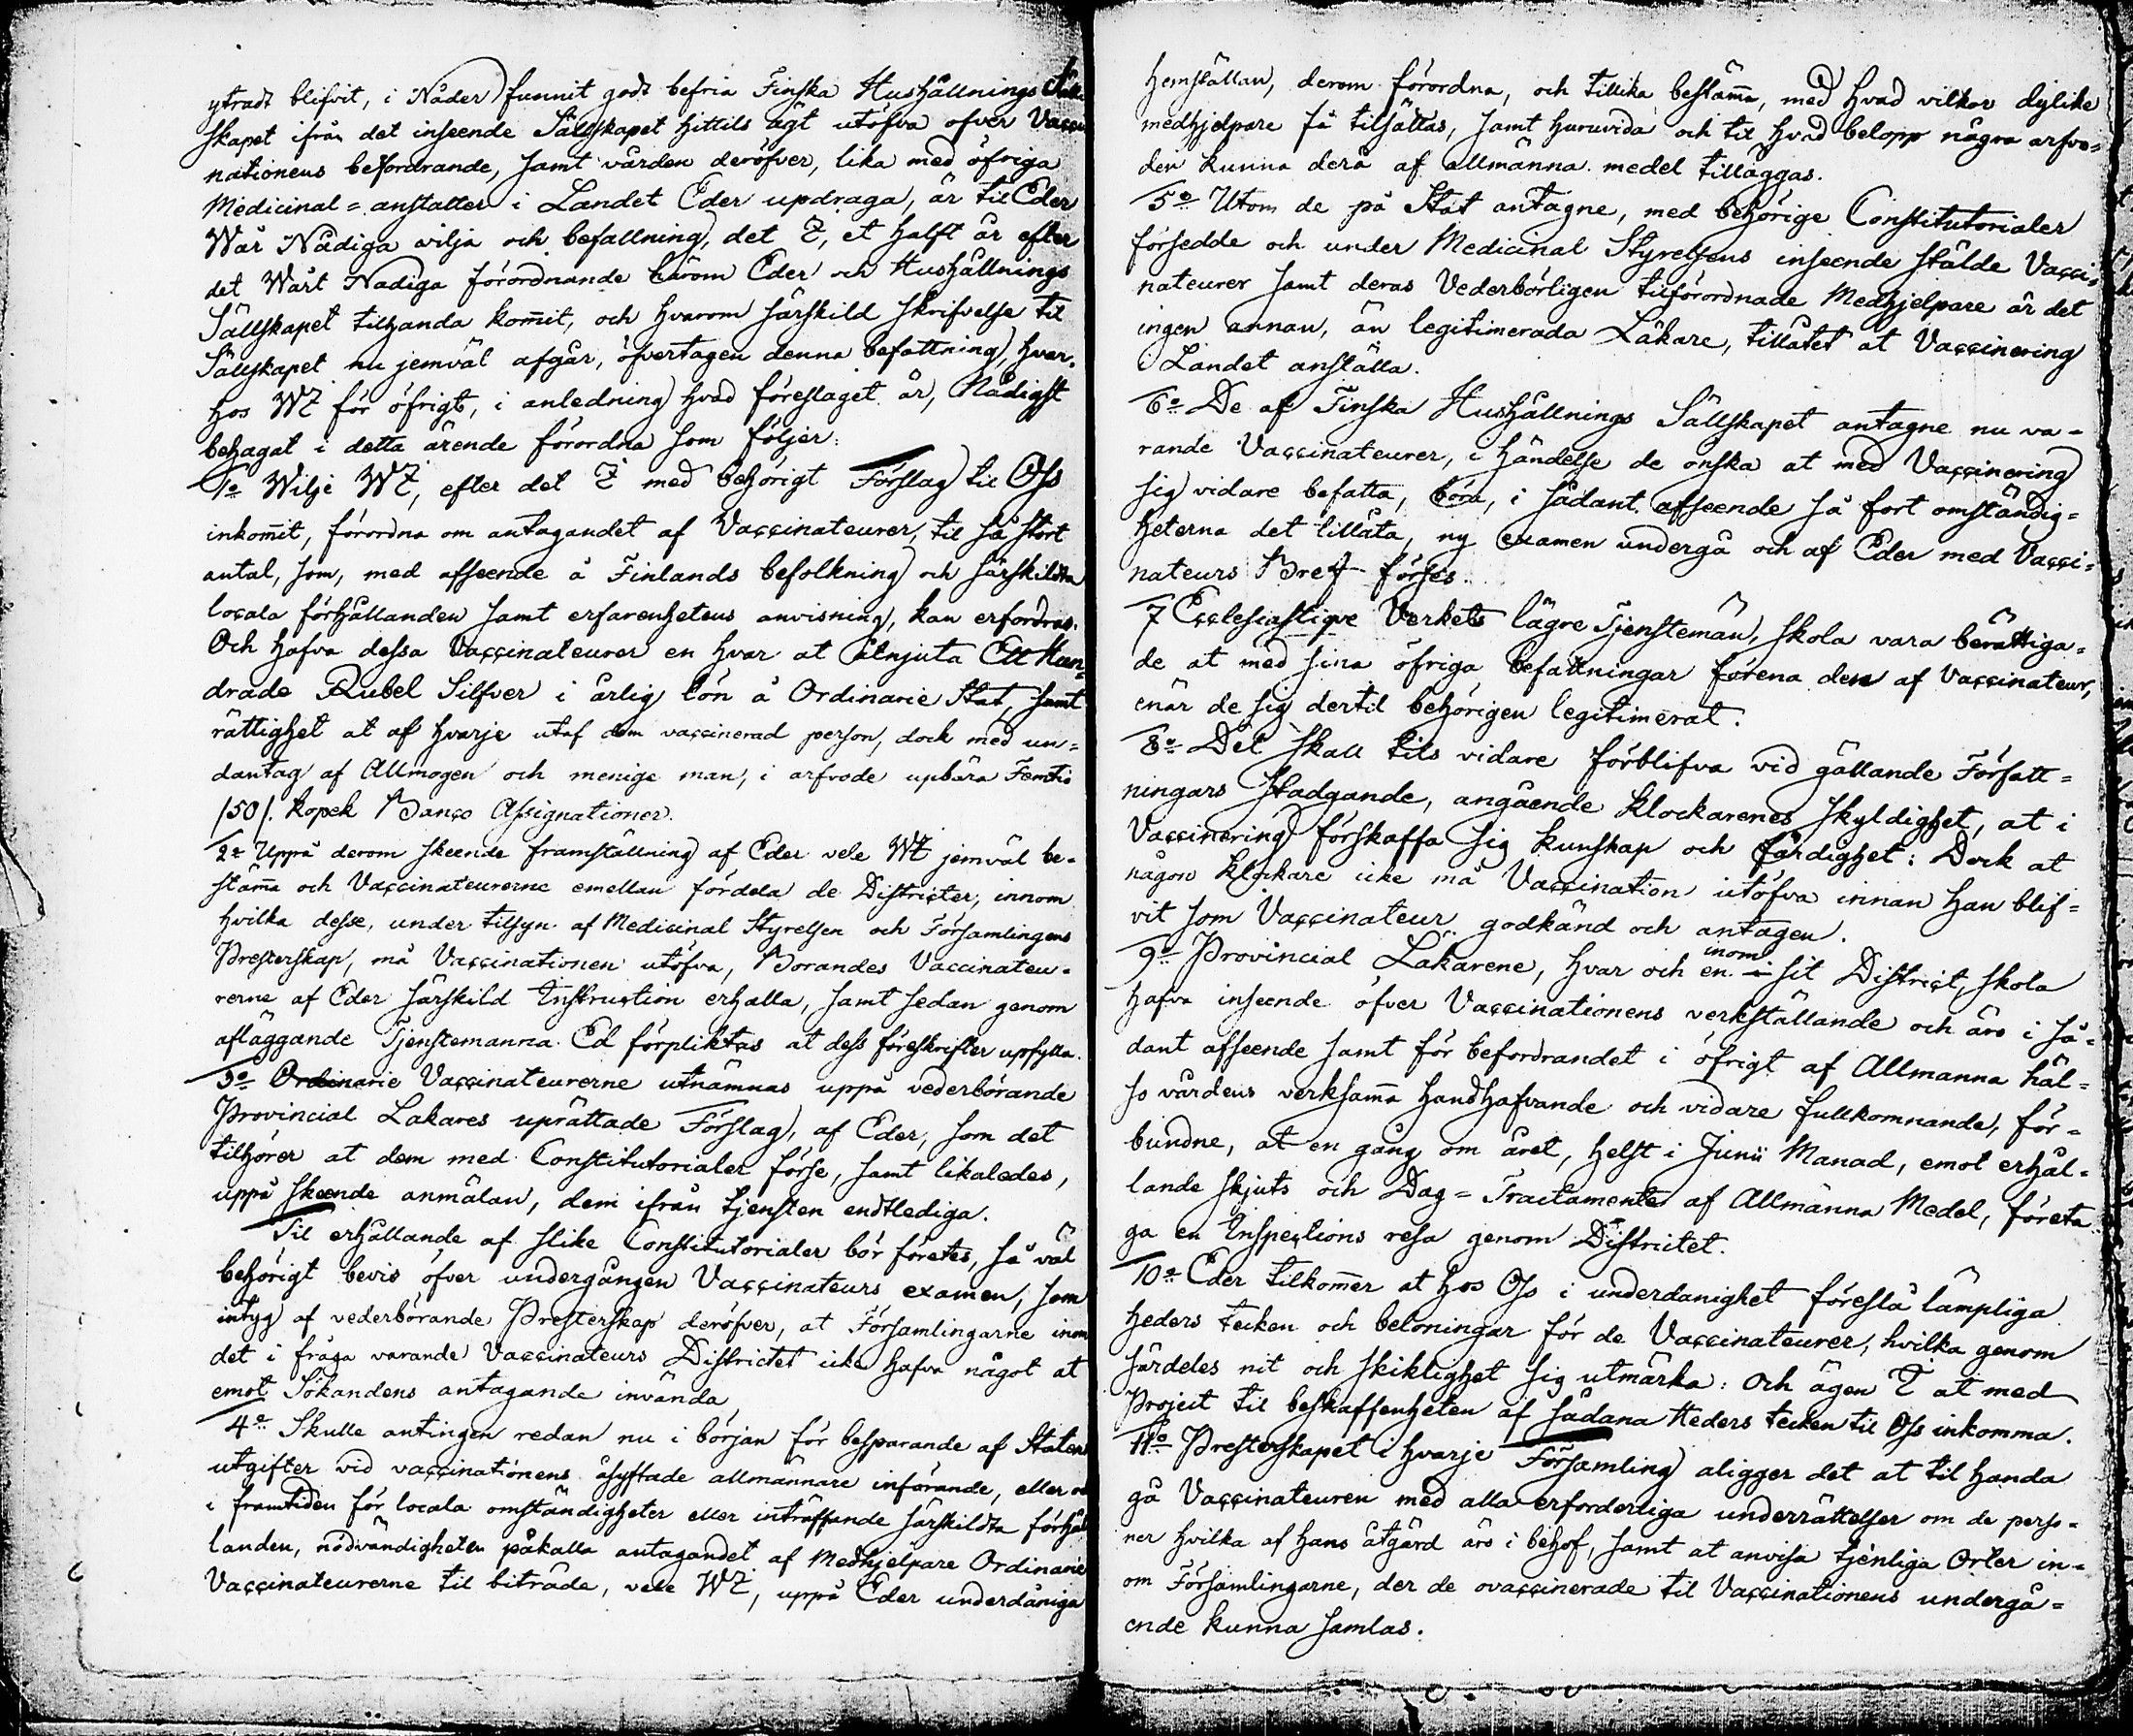 ytradt blifvit, i Nåder funnit godt befria Finska Hushållnings Säll
skapet ifrån det inseende Sällskapet hittils ägt utöfva öfver Vacci
nationens befordrande, samt vården deröfver, lika med öfriga
Medicinal=anstalter i Landet Eder updraga, är til Eder
Wår Nådiga vilja och befallning, det I, et halft år efter
det Wårt Nådiga förordnande härom Eder och Hushållnings
Sällskapet tilhanda kom̅it, och hvarom särskild skrifvelse til
Sällskapet nu jemväl afgår, öfvertagen denna befattning, hvar-
hos WI för öfrigt, i anledning hvad föreslaget är, Nådigst
behagat i detta ärende förordna som följer:
1o Wilje WI, efter det I med behörigt Förslag til Oss
inkom̅it, förordna om antagandet af Vaccinateurer, til så stort
antal, som, med afseende å Finlands befolkning och särskildta
locala förhållanden samt erfarenhetens anvisning, kan erfordras.
Och hafva dessa Vaccinateurer en hvar at åtnjuta Ett Hun=
drade Rubel Silfver i årlig lön å Ordinarie Stat, samt
rättighet at af hvarje utaf dem vaccinerad person, dock med un=
dantag af Allmogen och menige man, i arfvode upbära Femtio
/50/. kopek Banco Assignationer.
2o Uppå derom skeende framställning af Eder vele WI jemväl be-
stäm̅a och Vaccinateurerne emellan fördela de Districter, innom
hvilka desse, under tilsyn af Medicinal Styrelsen och Församlingens
Presterskap, må Vaccinationen utöfva, Börandes Vaccinateu-
rerne af Eder särskild Instruction erhalla, samt sedan genom
afläggande Tjenstemanna Ed förpliktas at dess föreskrifter upfylla.
3o Ordinarie Vaccinateurerne utnämnas uppå vederbörande
Provincial Läkares uprättade Förslag, af Eder, som det
tilhörer at dem med Constitutorialer förse, samt likaledes,
uppå skeende anmälan, dem ifrån tjensten endtlediga.
Til erhållande af slike Constitutorialer bör företes, så väl
behörigt bevis öfver undergången Vaccinateurs examen, som
intyg af vederbörande Presterskap deröfver, at Församlingarne inom
det i fråga varande Vaccinateurs Districtet icke hafva något at
emot Sökandens antagande invända
4o Skulle antingen redan nu i början för besparande af Staten
utgifter vid vaccinationens åsyftade allmännare införande, eller
i framtiden för locala omständigheter eller inträffande särskildta förhål
landen, nödvändigheten påkalla antagandet af Medhjelpare Ordinarie
Vaccinateurerne til biträde, vele WI, uppå Eder underdåniga
hemställan, derom förordna, och tillika bestäm̅a, med hvad vilkor dylike
medhjelpare få tilsättas, samt huruvida och til hvad belopp några arfvo=
den kunna derå af allmänna medel tilläggas.
5o Utom de på Stat antagne, med behörige Constitutorialer
försedde och under Medicinal Styrelsens inseende stälde Vacci=
nateurer samt deras Vederbörligen tilförordnade Medhjelpare är det
ingen annan, än legitimerada Läkare, tillåtet at Vaccinering
i Landet anställa.
6o De af Finska Hushållnings Sällskapet antagne nu va=
rande Vaccinateurer, i händelse de önska at med Vaccinering
sig vidare befatta, böra, i sådant afseende så fort omständig=
heterna det tillåta, ny examen undergå och af Eder med Vacci=
nateurs Bref förses.
7 Ecclesiastique Verkets lägre Tjenstemän, skola vara berättiga=
de at med sina öfriga befattningar förena den af Vaccinateur,
enär de sig dertil behörigen legitimerat.
8o Det skall tils vidare förblifva vid gällande Författ=
ningars stadgande, angående klockarenes skyldighet, at i
Vaccinering förskaffa sig kunskap och färdighet: Dock at
någon klockare icke må Vaccination utöfva innan han blif=
vit som Vaccinateur godkänd och antagen.
inom
9o Provincial Läkarene, hvar och en i sit District, skola
hafva inseende öfver Vaccinationens verkställande och äro i så=
dant afseende samt för befordrandet i öfrigt af Allmänna häl=
so vårdens verksam̅a handhafvande och vidare fullkomnande, för=
bundne, at en gång om året, helst i Junii Månad, emot erhål=
lande skjuts och Dag=Tractamente af Allmänna Medel, företa
ga en Inspections resa genom Districtet.
10o Eder tilkom̅er at hos Oss i underdånighet föreslå lämpliga
heders tecken och belöningar för de Vaccinateurer, hvilka genom
särdeles nit och skiklighet sig utmärka: Och ägen I at med
Project til beskaffenheten af sådana Heders tecken til Oss inkomma.
11o Presterskapet i hvarje Församling åligger det at til handa
gå Vaccinateuren med alla erforderliga underrättelser om de perso=
ner hvilka af hans åtgärd äro i behof, samt at anvisa tjenliga Orter in=
om Församlingarne, der de ovaccinerade til Vaccinationens undergå=
ende kunna samlas.